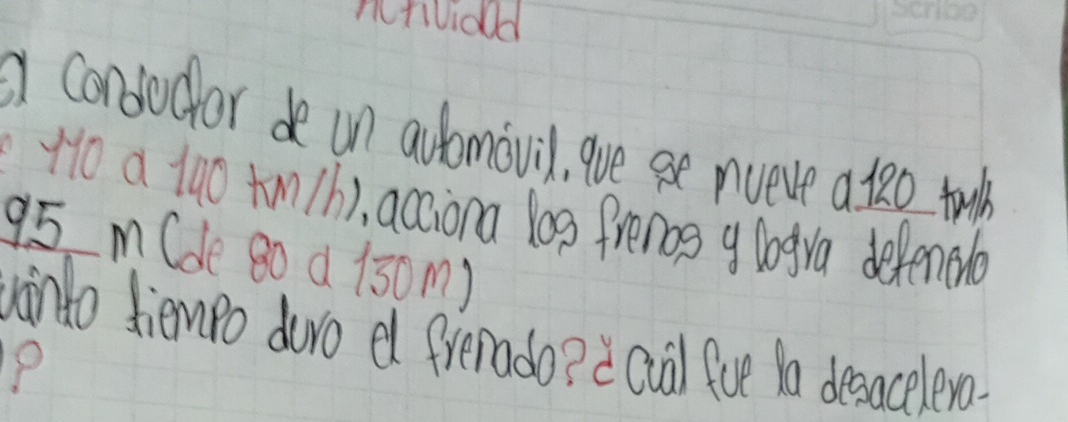 Actividad
Scribe
el Conductor de un automóvil, que se mueve a 120 km/h
110 a 140 km/h), acciona los frenos y logra detenerlo
95 m (de 80 a 150 m)
uánto tiempo duro el frenado? ¿Cuál fue la desacelera-
?